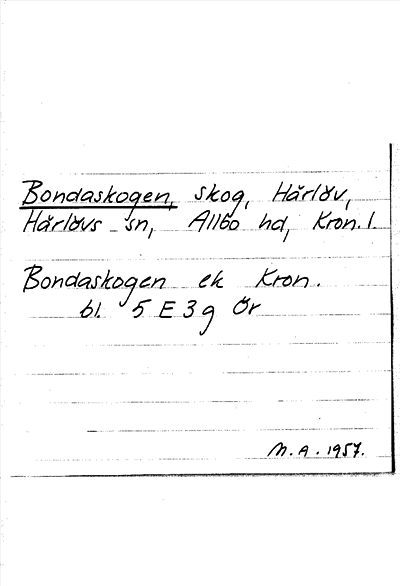 Bondaskogen, skog, Härlöv,
Härlövs sn, Allbo hd, Kron. l.
Bondaskogen ek Kron.
bl. 5 E 3 g Ör
M.A. 1957.